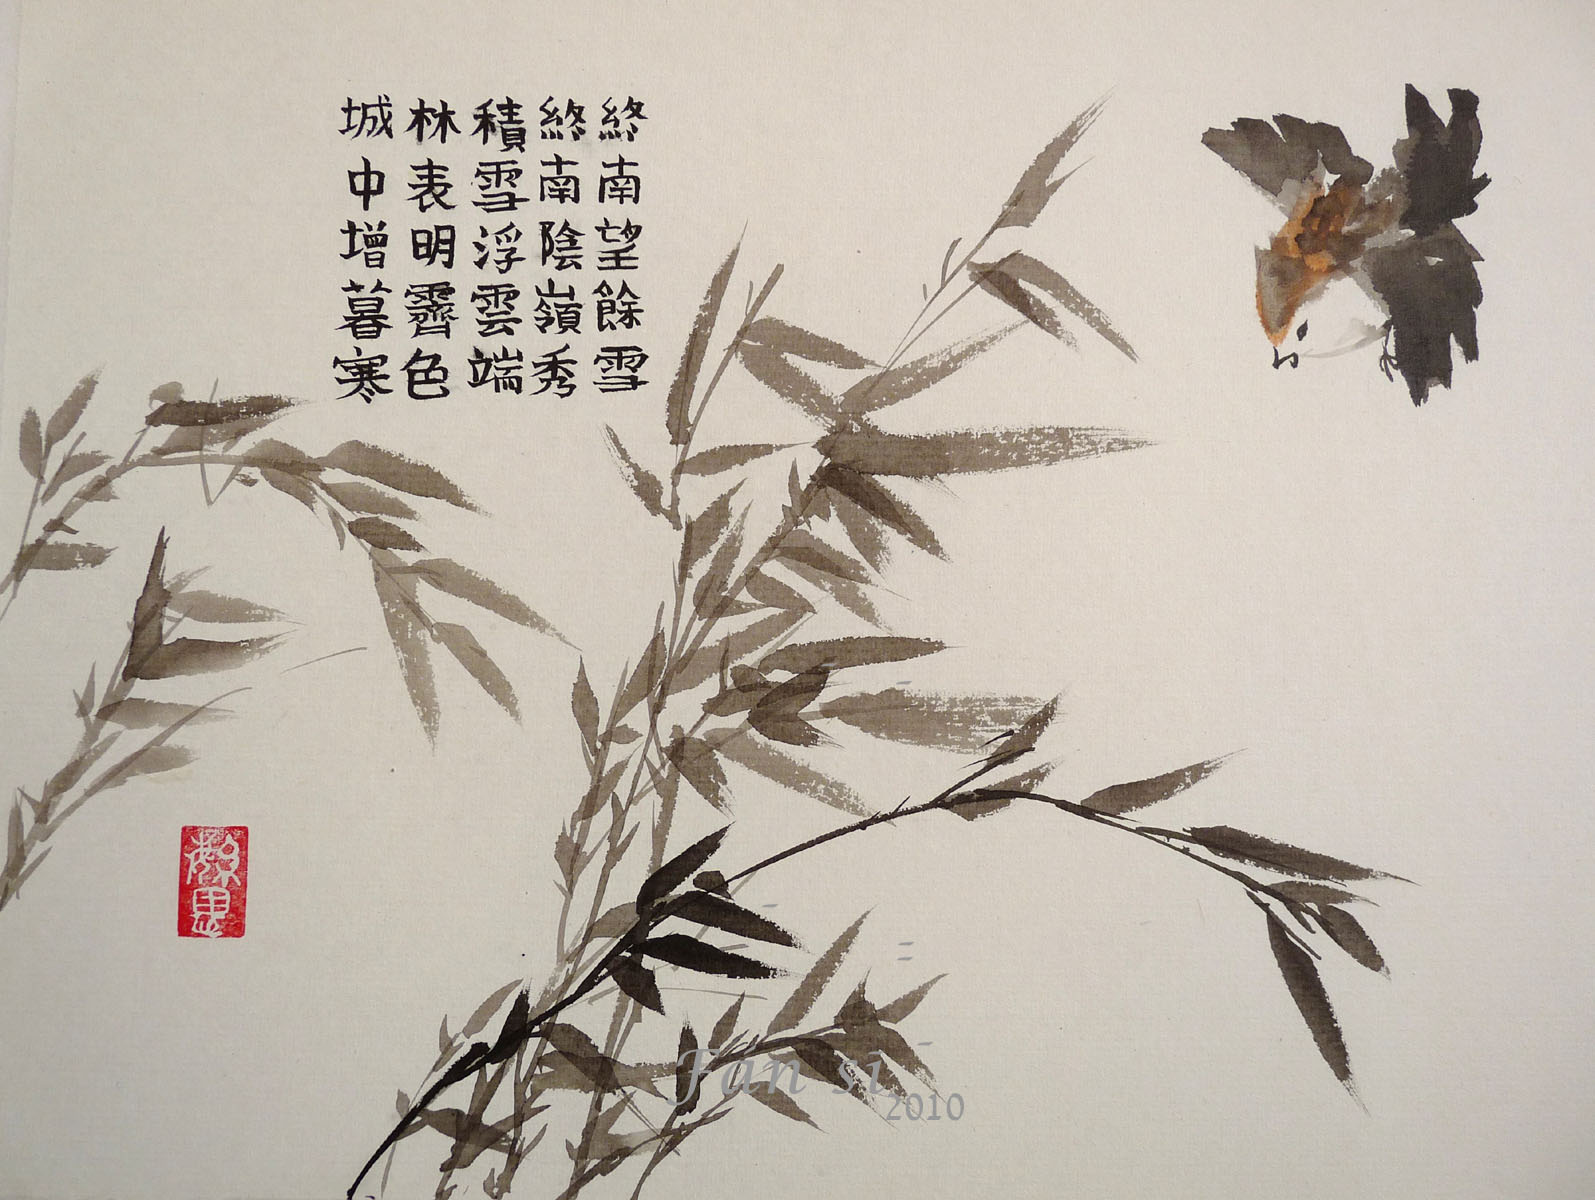 終南望餘雪
終南陰嶺秀
積雪浮雲端
林表明霽色
城中增暮寒
Fán sī
2010